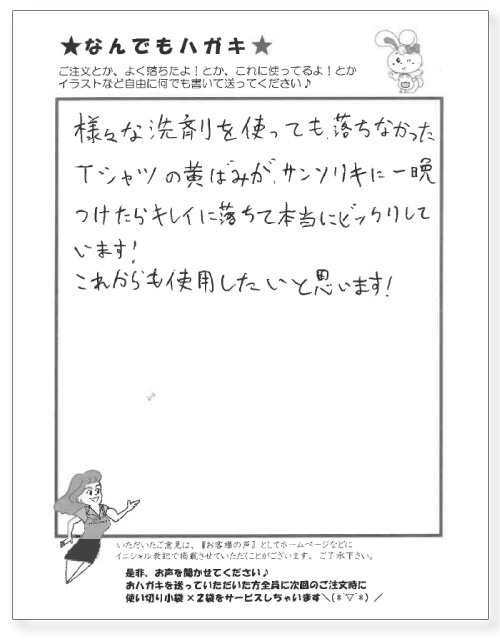 ★なんでもハガキ★
ご注文とか、よく落ちたよ！とか、これに使ってるよ！とか
イラストなど自由に何でも書いて送ってください♪
様々な洗剤を使っても、落ちなかった
Tシャツの黄ばみが、サンソリキに一晩
つけたらキレイに落ちて本当にビックリして
います!
これからも使用したいと思います!
いただいたご意見は、『お客様の声』としてホームページなどに
イニシャル表記で掲載させていただくことがございます。ご了承下さい。
是非、お声を聞かせてください♪
おハガキを送っていただいた方全員に次回のご注文時に
使い切り小袋×２袋をサービスしちゃいます＼(*´▽`*)／